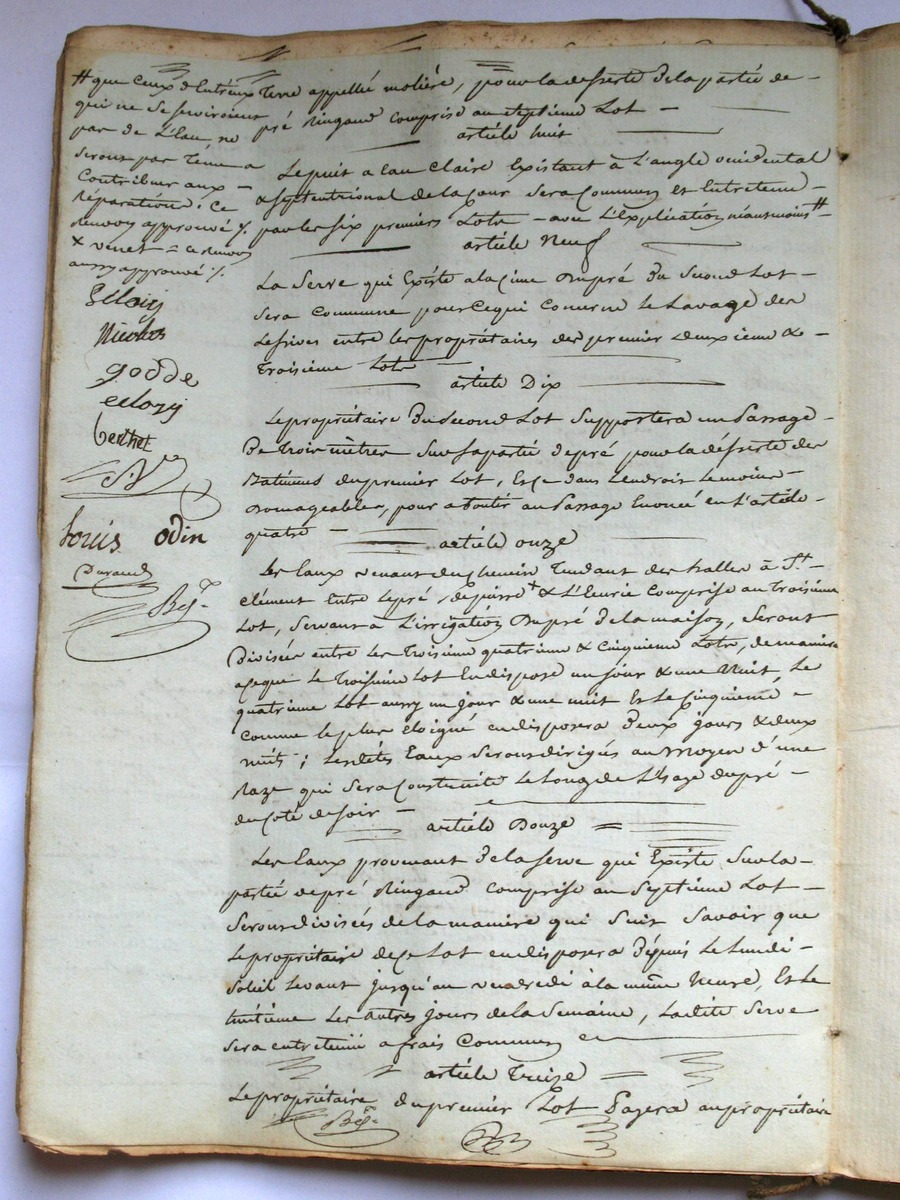 # que Ceux d'Entreux
qui ne Se Serviroient
pas de L'Eau, ne
Seront pas Tenu a
Contribuer aux
Réparations : Ce
renvoy approuvé %.
& venet = ce renvoy
aussy approuvé %
Nicolas
godde
eeloy
berthet
Louis odin
Durand
Bej.
Terre appellé molière, pour la desserte de la partie de
pré Ringaud comprise au septieme Lot —
article huit
Le puit a Eau Claire Existant à L'angle occidental
& septentrional de la Cour Sera Commun et Entretenu
par les Six premiers Lots — avec L'Explication néanmoins #
article Neuf
La Serve qui Existe a la Cime du pré du Second Lot —
Sera Commune pour Ce qui Concerne Le Lavage des
Lessives entre les propriétaires des premier deuxieme &
Troisieme Lots
article Dix
Le propriétaire du Second Lot Supportera un Passage
De Trois mètres Sur Sa partie de pré pour la désserte des
Batimens du premier Lot, Et Ce dans L'endroit Le moins
domageable, pour aboutir au Passage Enoncé en L'article
quatre —
article onze
Les Eaux venant du Chemin Tendant des halles à St
clément Entre Le pré & L'Eurie Comprise au Troisieme
Lot, Servant à L'irrigation du pré de la maison, Seront
Divisées entre les Troisieme quatrieme & Cinquieme Lots, de maniere
a Ce que Le Troisieme Lot En dispose un jour & une Nuit, Le
quatrieme Lot aussy un jour & une nuit Et Le Cinquieme —
Comme le plus éloigné en disposera Deux jours & deux
nuits ; Lesdites Eaux Seront dirigés au moyen d'une
Raze qui Sera Construite Le Long de L'haye du pré —
du Coté de Soir —
article Douze
Les Eaux provenant de la Serve qui Existe Sur la
partie de pré Ringaud Comprise au Septieme Lot —
Seront divisées de la maniere qui Suit Savoir que
Le propriétaire de Ce Lot en disposera Depuis Le Lundi
Soleil Levant jusqu'au vendredi à la même heure, Et Le
huitieme Les autres jours de la Semaine, Ladite Serve
Sera entretenue a frais Communs
article Treize
Le propriétaire du premier Lot Payera au propriétaire
Bej.